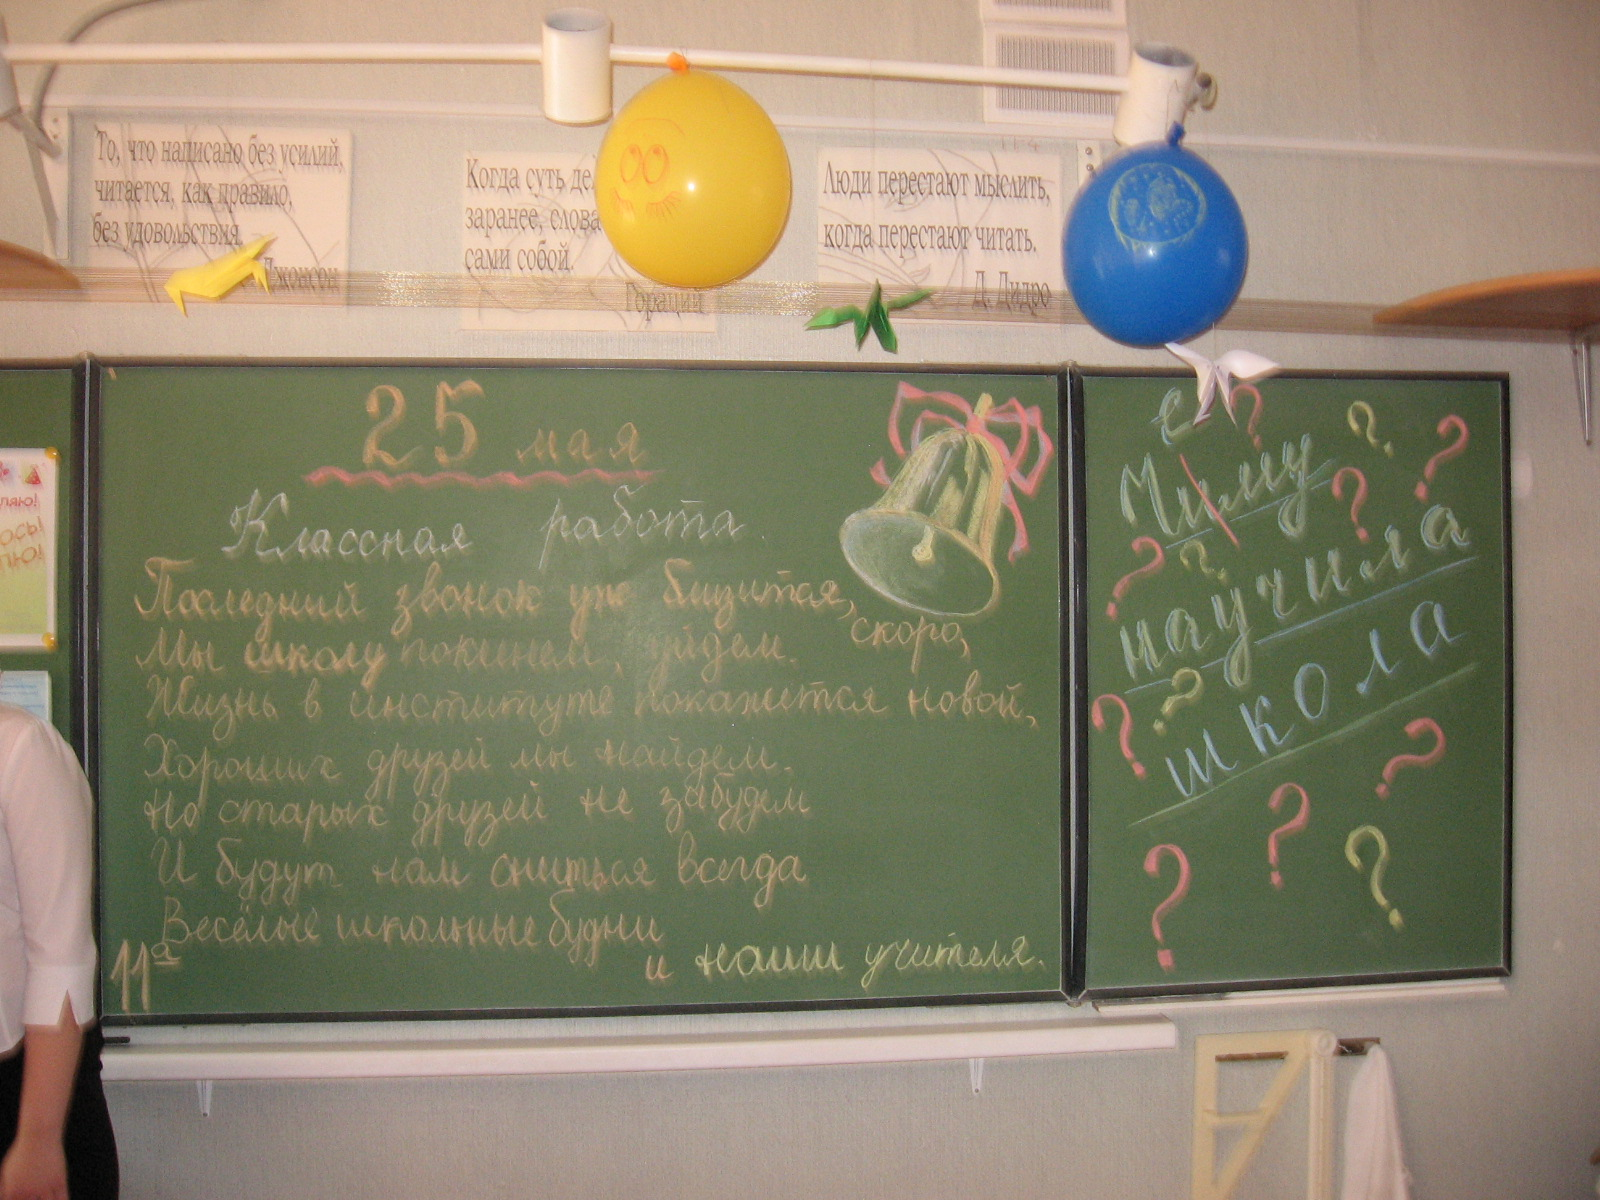 То, что написано без усилий,
читается, как правило,
без удовольствия.
Джонсон
Когда суть
заранее, слова
сами собой.
Гораций
Люди перестают мыслить,
когда перестают читать.
Д. Дидро
11-4
25 мая
Классная работа.
Последний звонок уже близится,
скоро,
Мы школу покинем, уйдем.
Жизнь в институте покажется новой,
Хороших друзей мы найдем.
Но старых друзей не забудем
И будут нам сниться всегда
Весёлые школьные будни
и наши учителя.
11а
е
Чиму
научила
школа
? ? ? ? ? ? ? ? ? ? ? ? ?